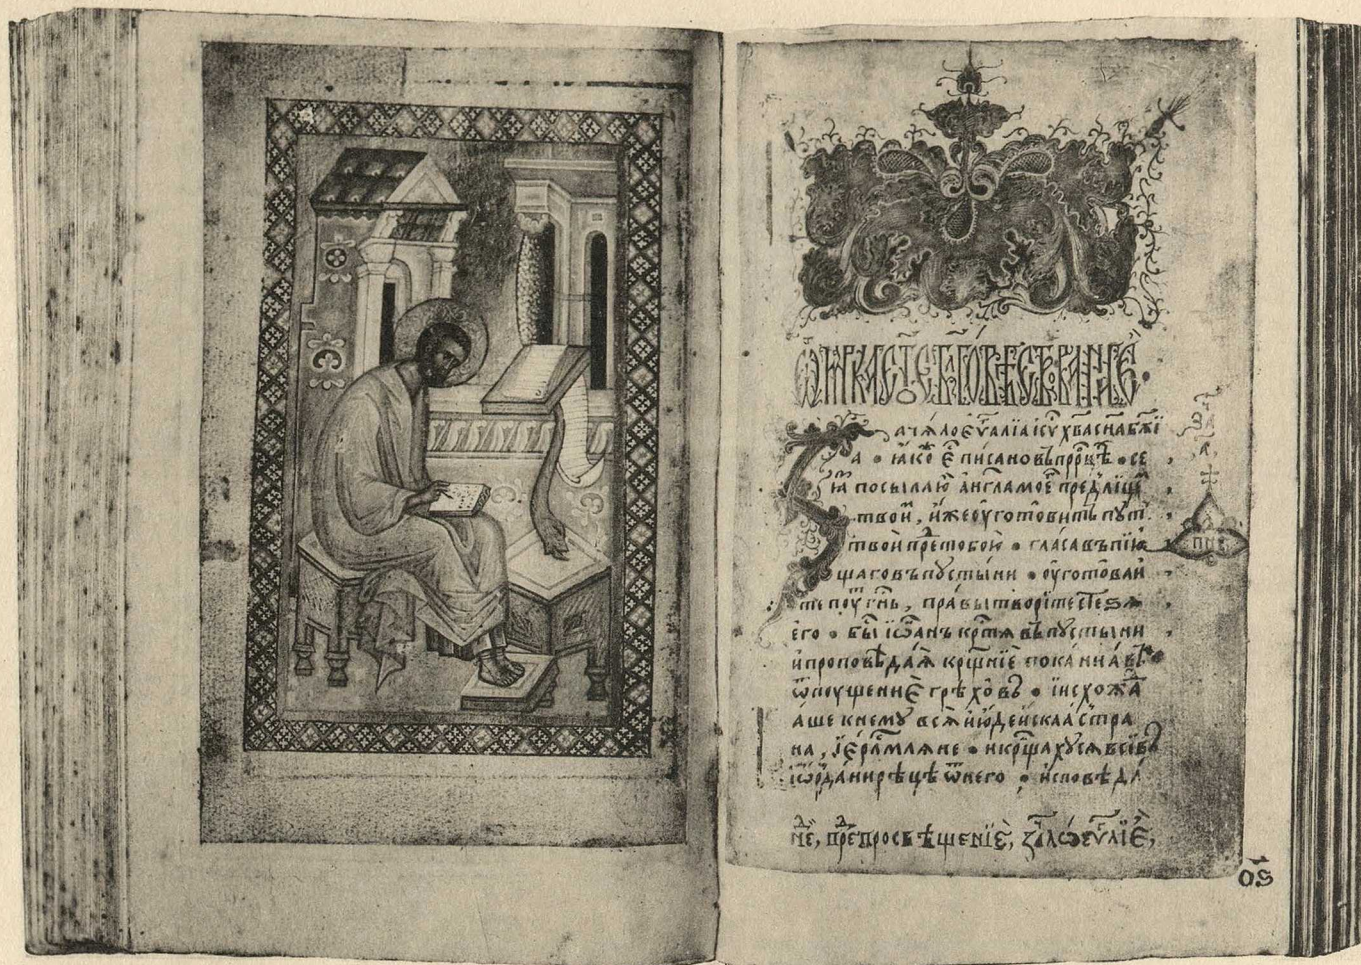 Ѿ МРКА СТ҃ОЕ БЛ҃ГОВѢСТВОВАНИЕ
Зачѧло еѵⷢ҇алїа ісу҃ х҃ва сн҃а бж҃їі
а • ꙗко є҆ писано въ прⷪ҇рцѣ • се
ꙗ посылаю анг҃ла мое҆ пред лице҆
твои҆, иже оуготовить пут̾
твои прⷣе тобою • гласа въпїю
щаго въ пустыни • оуготоваи
те поу҆ г҃нь, правы творїте стеѕѧ
его • бы҆ іѡ҃анъ крⷭ҇тѧ въ пустыни
и проповѣдаѧ крщ҃нїе покаꙗнїа въ
ѿпоущение грѣховъ • і исхожⷣа
аше к нему всѧ июдеискаа стра
на, і ієрⷭ҇лмлѧне • и крⷭ҇щахусѧ вси въ
іѡрⷣани рѣцѣ ѿ него • исповѣда
нⷣе, прⷣе просвѣщенїе, за҃ло еѵⷢ҇лїе,
за҃
пне
о҃ѕ